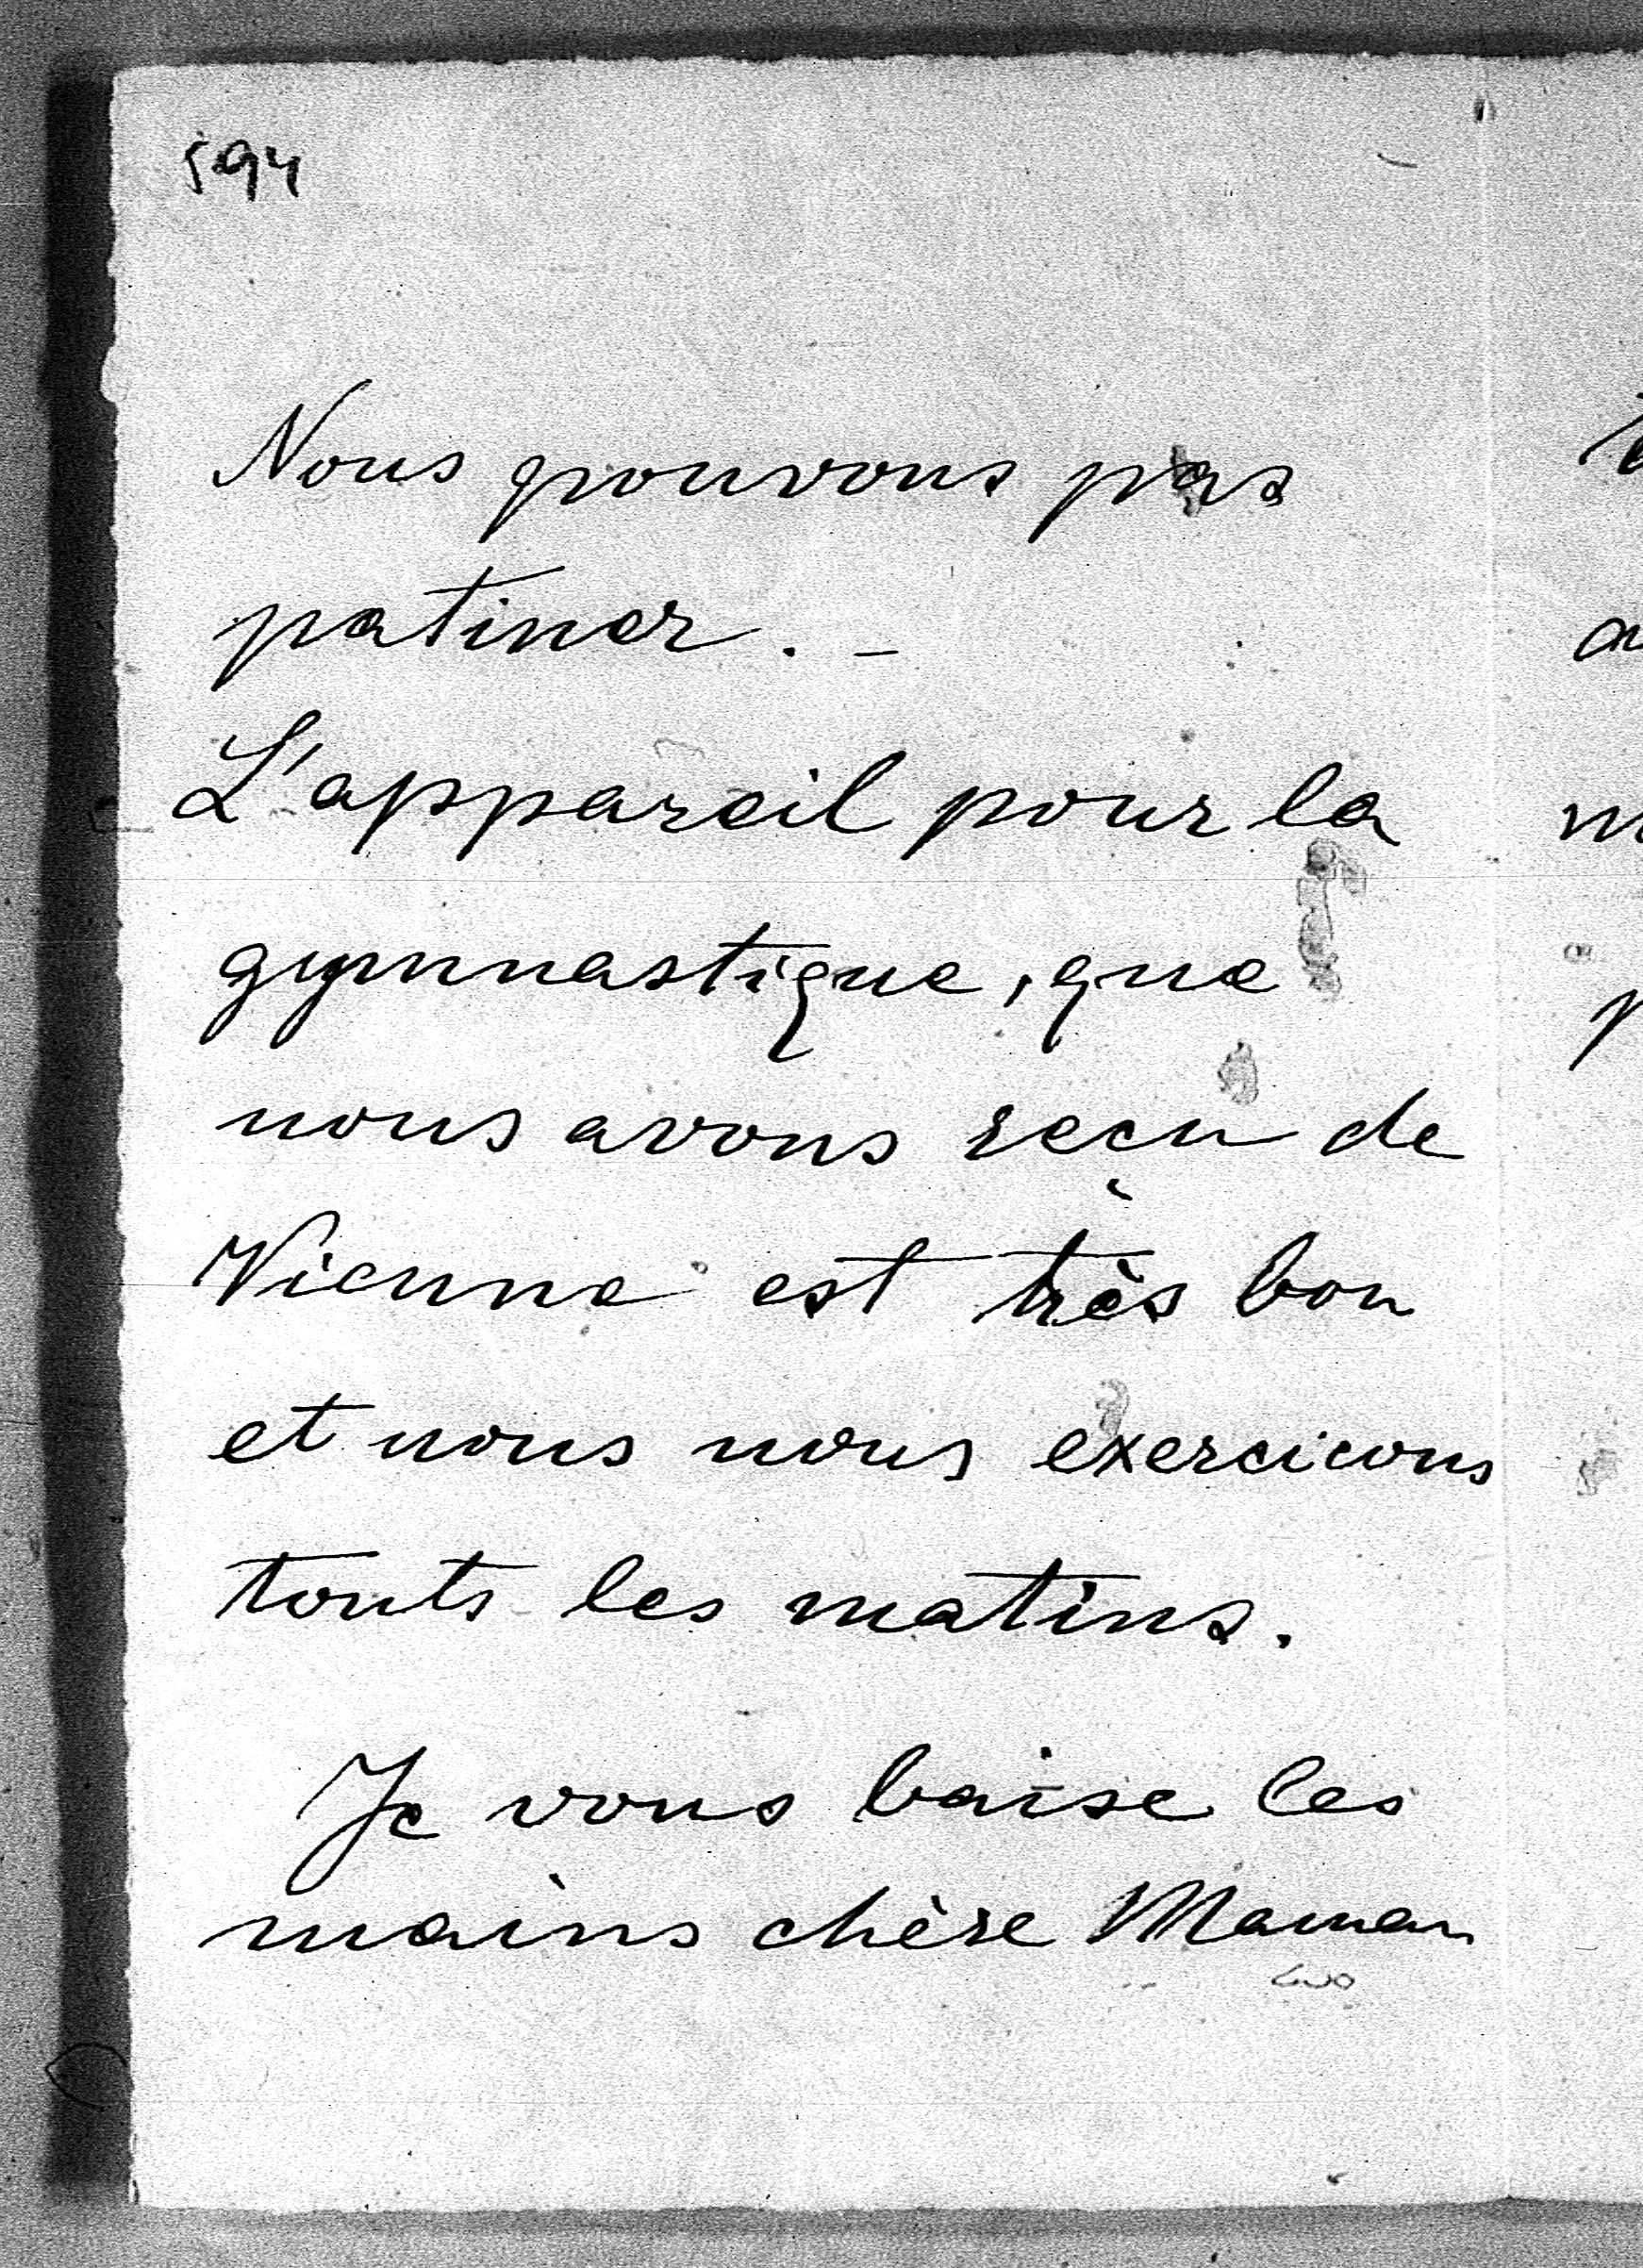 594
Nous pouvons pas
patiner. –
L'appareil pour la
gymnastique, que
nous avons recu de
Vienne est très bon
et nous nous exercicons
touts les matins.
Je vous baise les
mains chère Maman